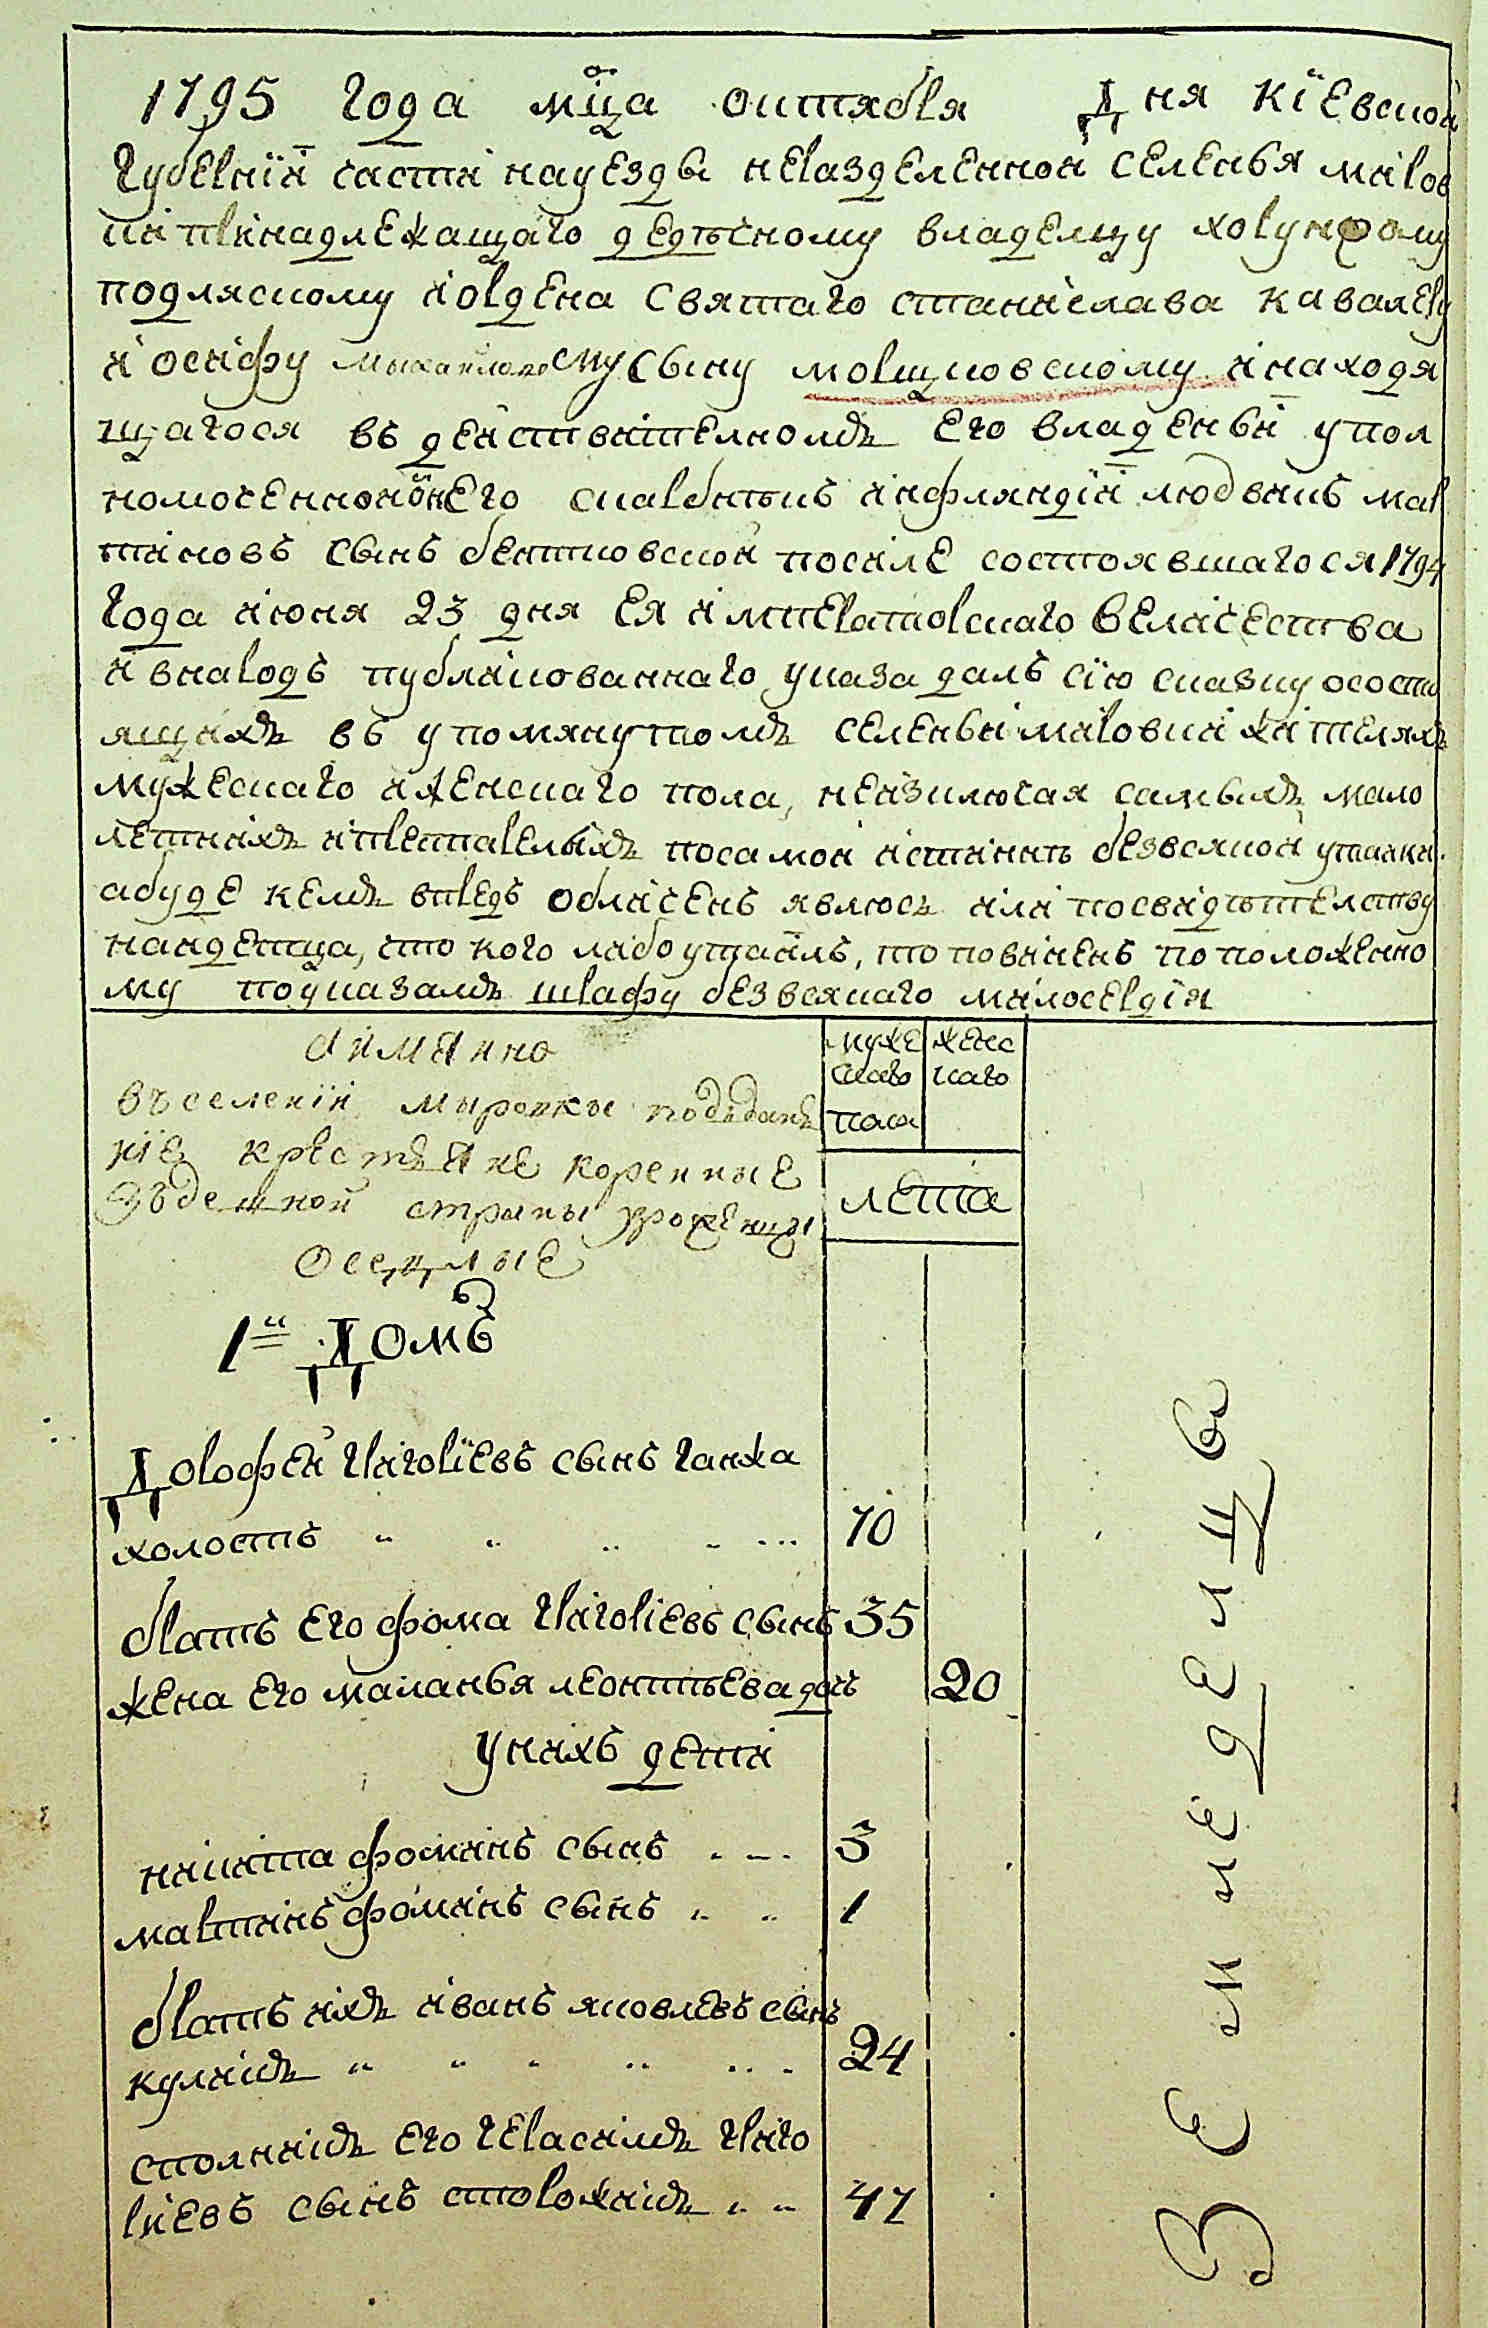 1795 года мца октября дня Кіевской
губернїи части науезды неразделенной селенья миров
ки принадлежащаго дедычному владелцу хорунжому
подляскому иордена Святаго станислава кавалеру
иосифу михайловому Сыну морщковскому инаходя
щагося въ действителномъ его владеньи упол
номоченной онего скарбникъ инфляндїи людвикъ мар
тиновъ сынъ бентковской посиле состоявшагося 1794
года июня 23 дня ея императорскаго величества
ивнародъ публикованнаго указа далъ сїю сказку ососто
ящихъ въ упомянутомъ селеньи мировки жителяхъ
мужескаго иженскаго пола, неизключая самыхъ мало
летнихъ ипрестарелыхъ посамой истинне безвсякой утайки
абуде кемъ впредь обличенъ явлюсь или посвидетелству
найдетца, что кого либо утаилъ, то повиненъ по положенно
му поуказамъ шрафу безвсякаго милосердия
Аименно
въ селенїи мыровки поддан
нїе крестьяне коренные
здешной страны уроженцы
оседлые
муже
скаго
пола
женс
каго
лета
1й Домъ
Дорофей Григорїевъ сынъ ганжа
холостъ " " " " ... 70
братъ его фома григориевъ сынъ 35
жена его маланья леонтьева дочь 20
унихъ дети
никита фоминъ сынъ . - . 3
мартинъ фоминъ сынъ " " 1
братъ ихъ иванъ яковлевъ сынъ
куликъ " " " " " . 24
столникъ его герасимъ григо
риевъ сынъ сторожикъ " " 47
Земледелцы